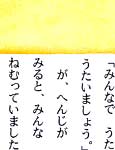 「みんなで　うた
うたいましょう。」
が、へんじが
みると、みんな
ねむっていました